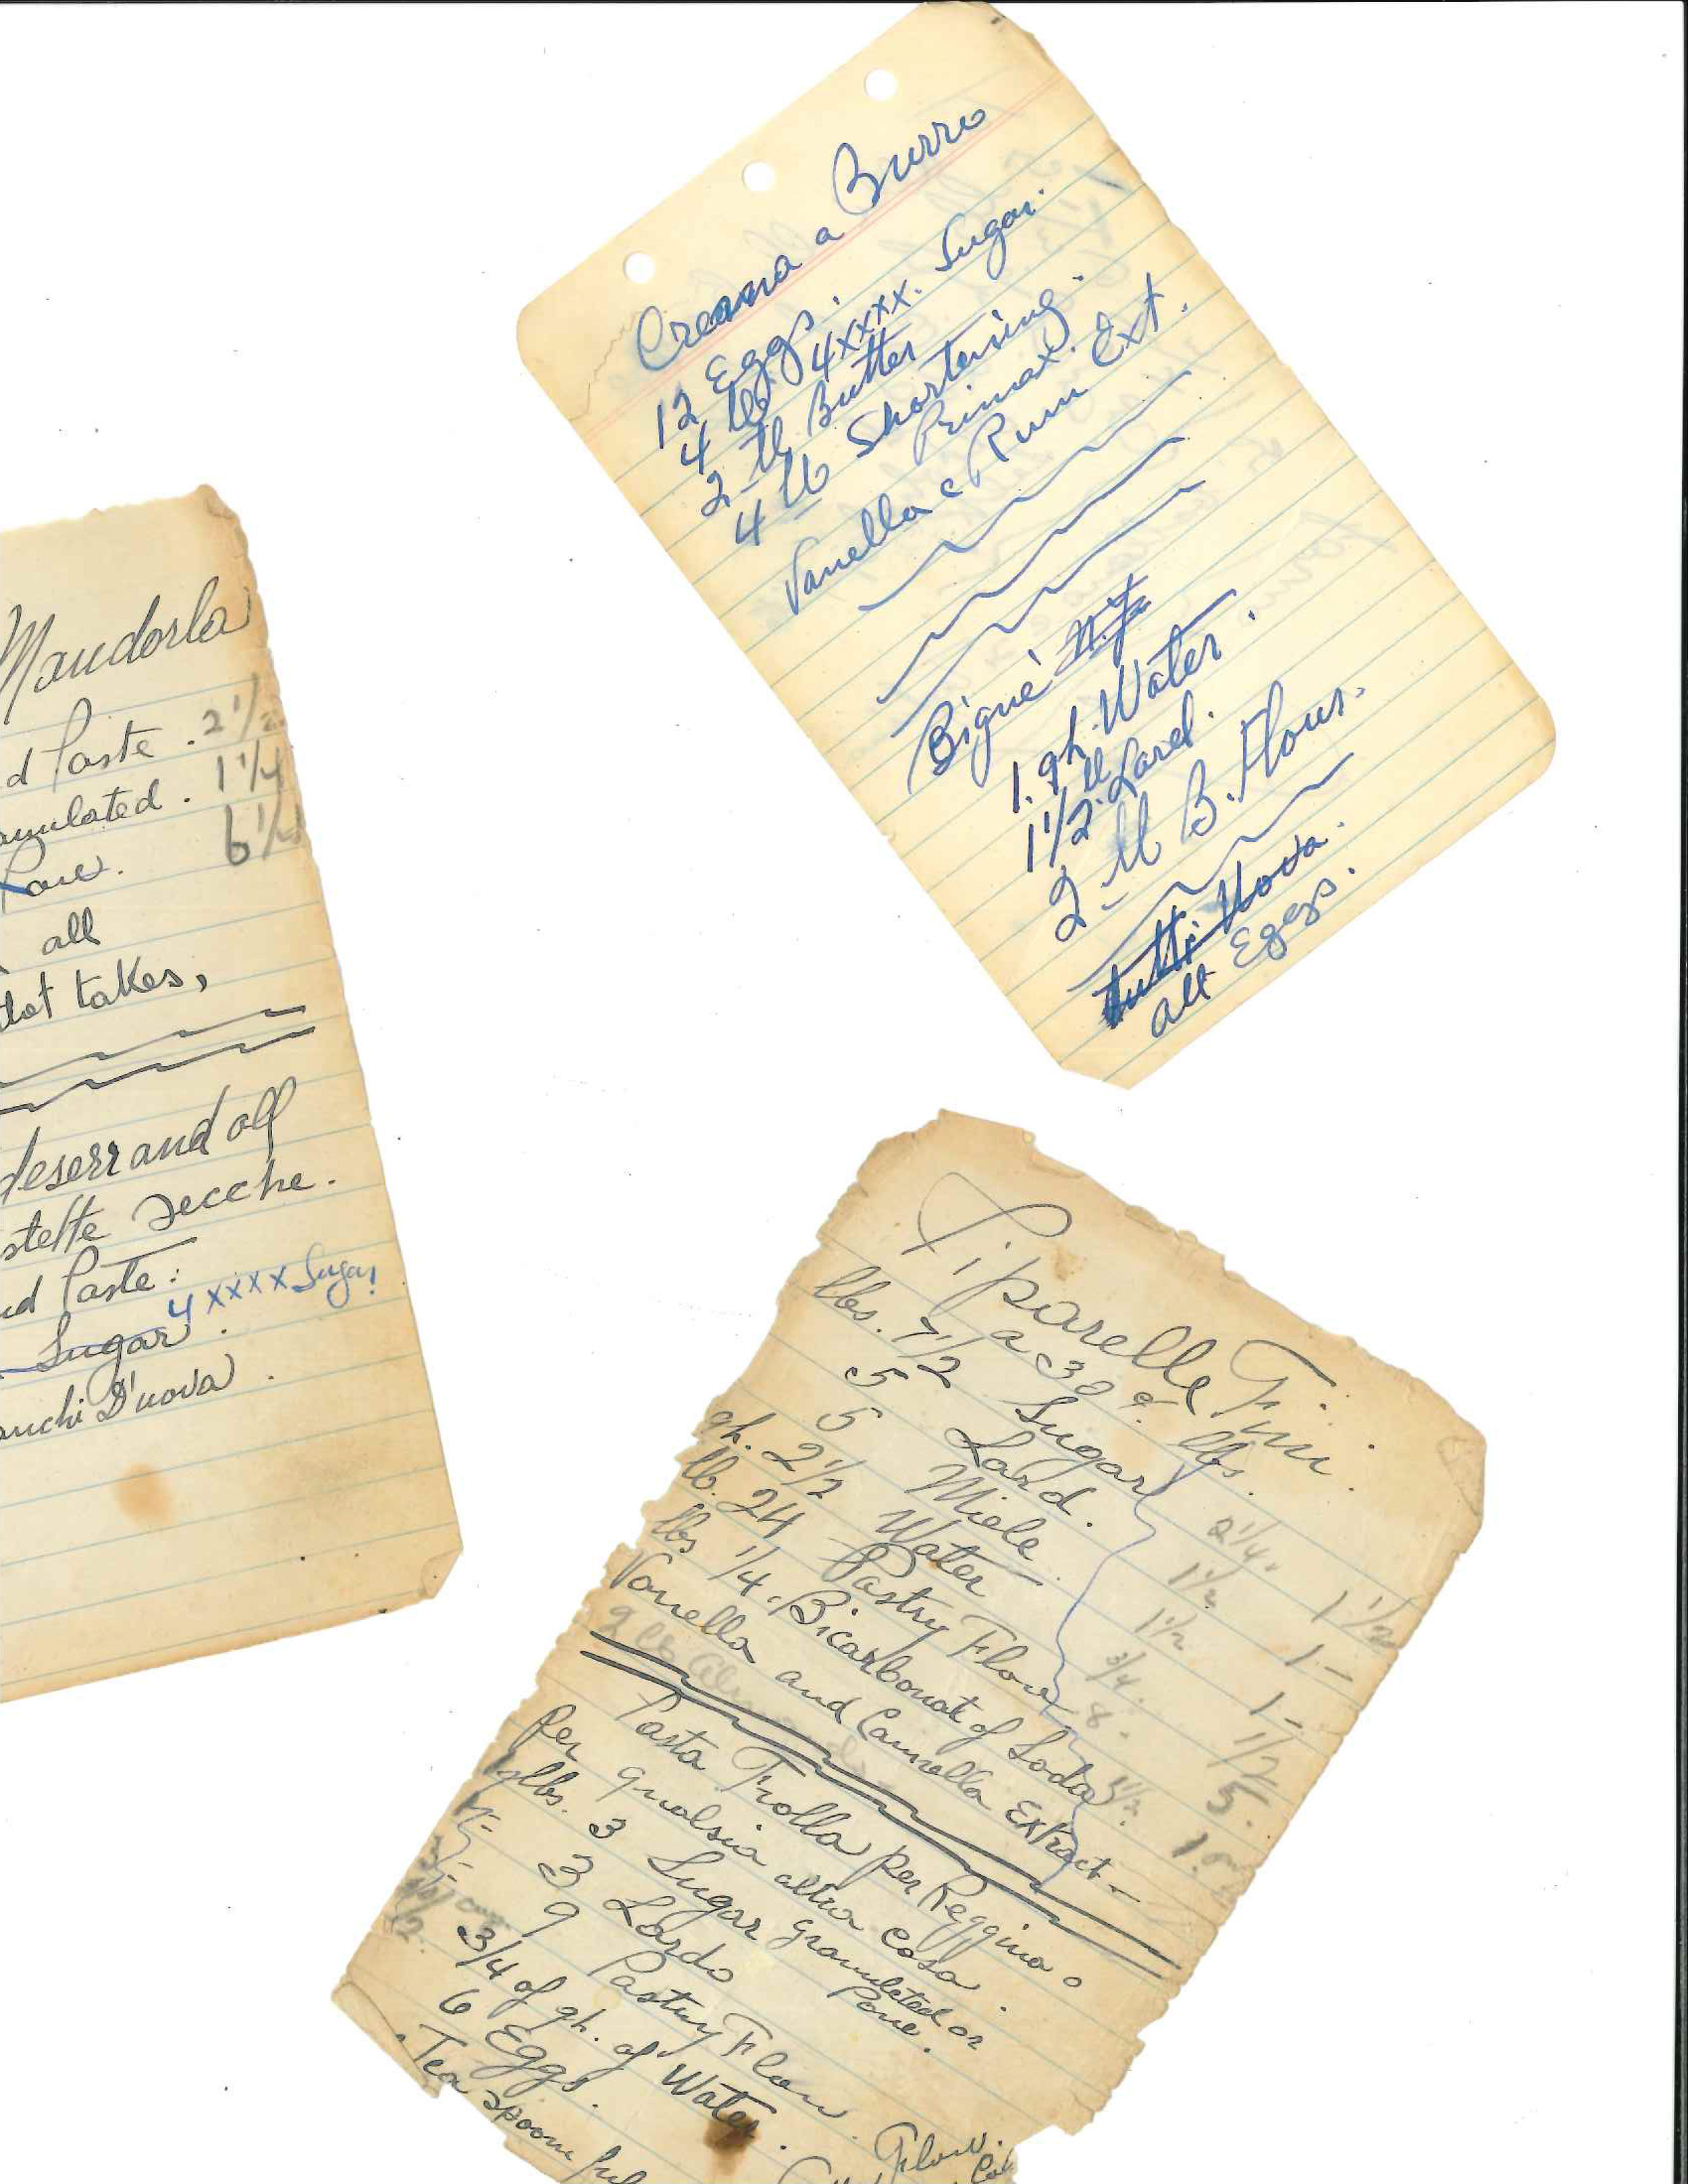 Crema a Burro
12 Eggs.
4 lb 4xxxx. Sugar.
2 lb Butter
4 lb Shortening.
Primax.
Vanella e Rum Ext.
Bignè
1. qh. Water.
1 1/2. lb Lard.
2 - lb B. Flour.
tutti Uova.
all Eggs.
Mandorla
d Paste . 2 1/2
anulated . 1 1/4
6 1/4
all
takes,
deserr and all
stette Secche.
d Paste :
4 xxxx Sugar
Sugar .
D'uova .
Liparelle Fini.
a 30 lbs.
lbs. 7 1/2 Sugar 2 1/4. 1 1/2
5 Lard. 1 1/2 1 -
5 Miele 1 1/2 1 -
qh. 2 1/2 Water 3/4. 1/2
lb. 24 Pastry Flour 8 - 5.
lbs 1/4. Bicarbonat of Soda
Vanella and Cannella Extract -
Pasta Frolla per Reggina o
Per qualsia altra cosa.
lbs. 3 Sugar granulated or
Pone.
3 Lardo
9 Pastry Flour
3/4 of qh. of Water.
6 Eggs.
Tea spoon ful
Flour.